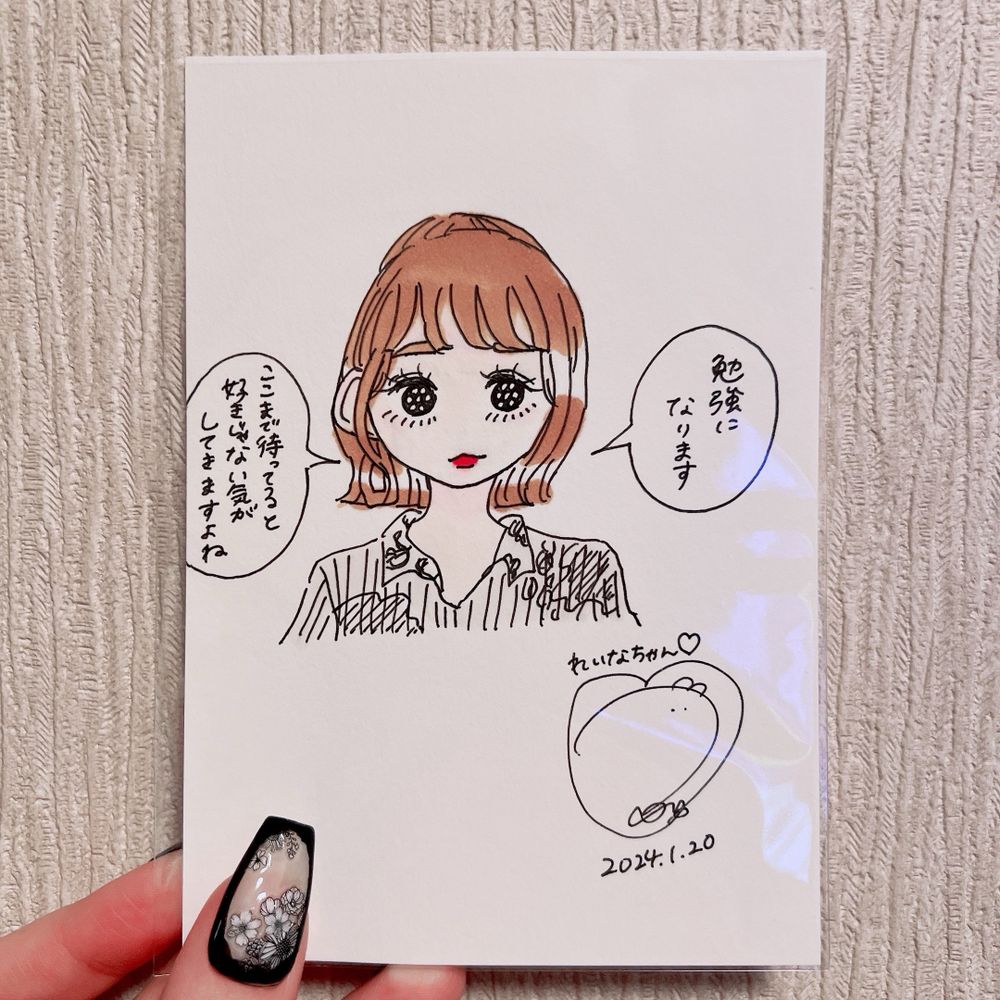 勉強に
なります
ここまで待ってると
好きじゃない気が
してきますよね
れいなちゃん♡
2024.1.20